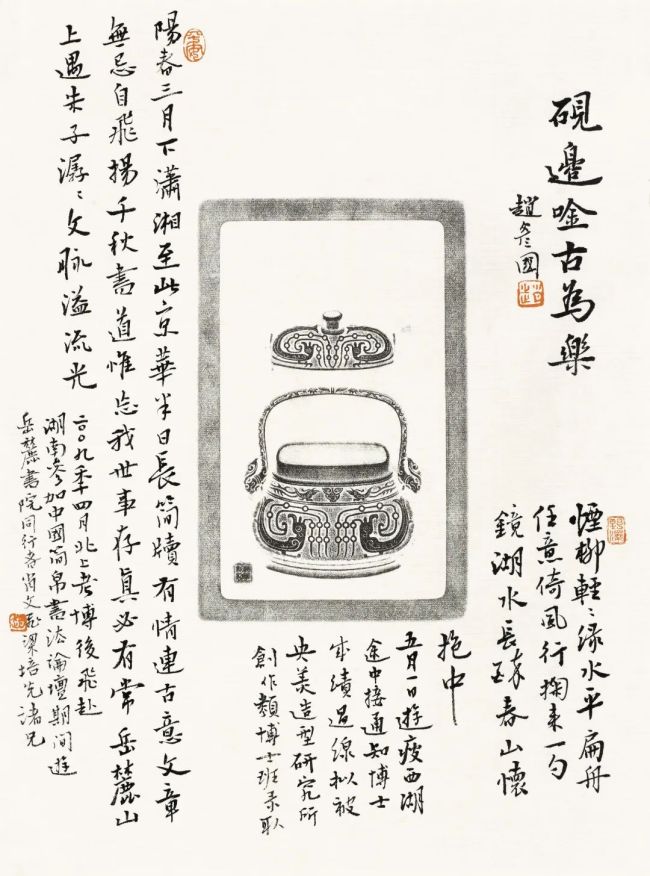 硯邊唫古為樂
趙彥國
煙柳輕〻綠水平扁舟
任意倚風行掬来一勺
鏡湖水長醉春山懷
抱中
五月一日遊瘦西湖
途中接通知博士
成績過線拟被
央美造型研究所
創作類博士班录取
陽春三月下瀟湘至此京華半日長简牘有情連古意文章
無忌自飛揚千秋書道惟忘我世事存真必有常岳麓山
上遇朱子潺〻文脉溢流光
二〇〇九年四月北上考博後飛赴
湖南參加中國简帛書法論壇期間遊
岳麓書院同行者肖文飛梁培先諸兄